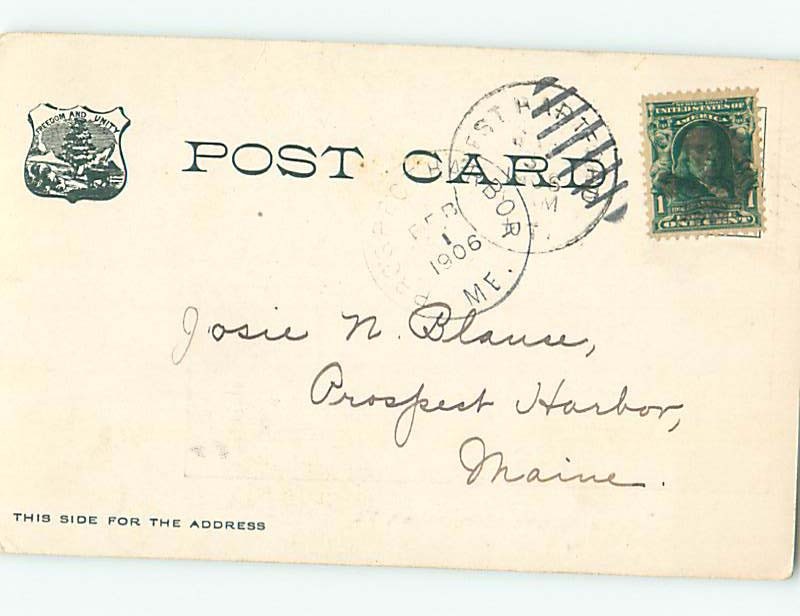 FREEDOM AND UNITY
POST CARD
WEST HARTFORD
PROSPECT HARBOR
FEB
1
1906
ME.
SERIES 1902
UNITED STATES OF
AMERICA
1 1
ONE CENT
Josie N. Blause,
Prospect Harbor,
Maine.
THIS SIDE FOR THE ADDRESS